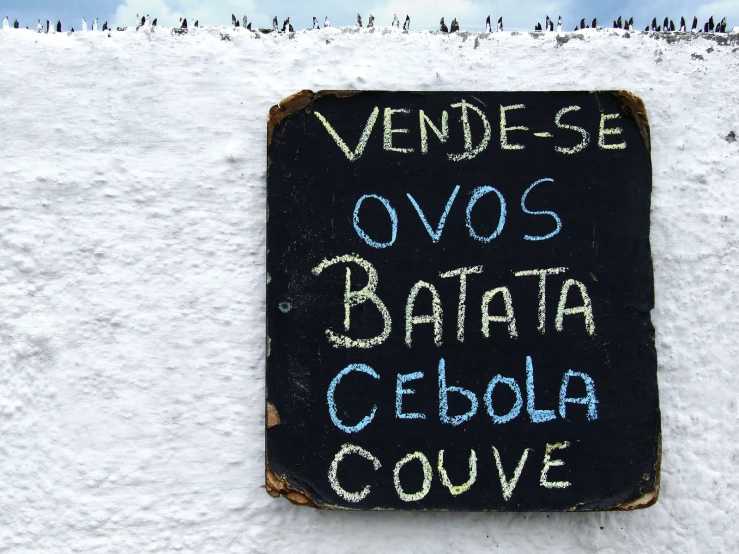 VENDE-SE
OVOS
BATATA
CEBOLA
COUVE